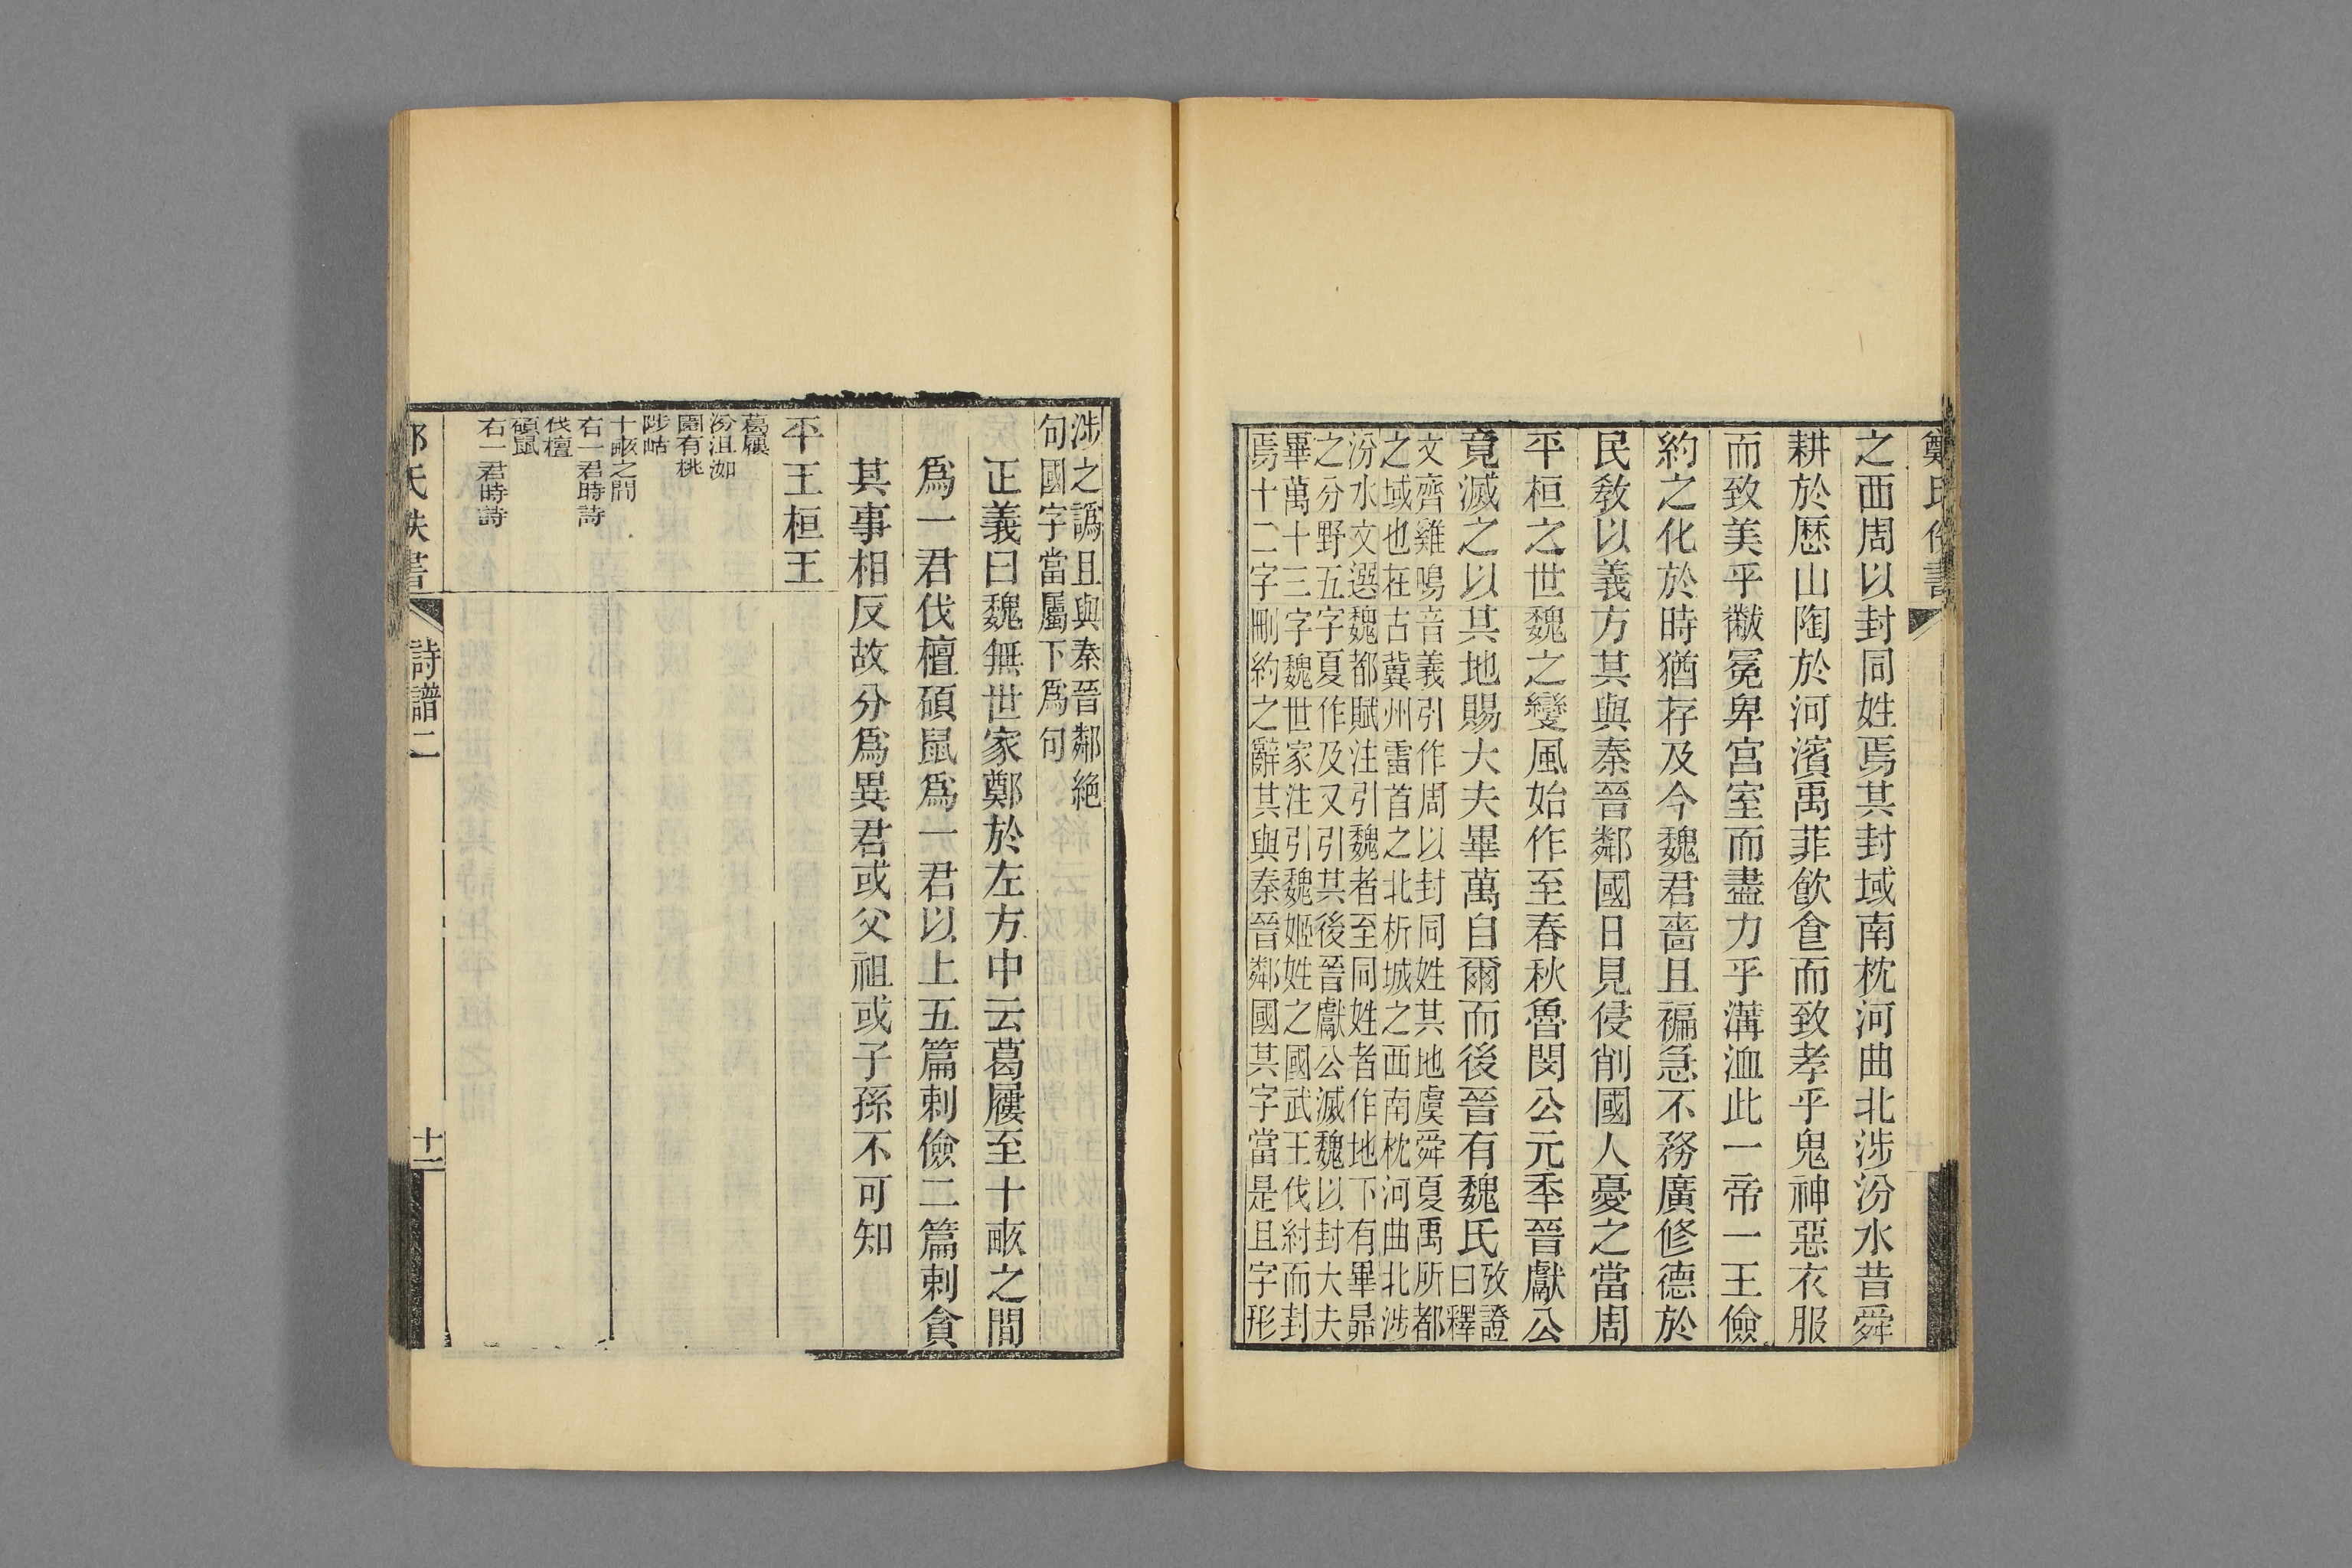 之西周以封同姓焉其封域南枕河曲北涉汾水昔舜
耕於歷山陶於河濱禹菲飲食而致孝乎鬼神惡衣服
而致美乎黻冕卑宮室而盡力乎溝洫此一帝一王儉
約之化於時猶存及今魏君嗇且褊急不務廣修德於
民敎以義方其與秦晉鄰國日見侵削國人憂之當周
平桓之世魏之變風始作至春秋魯閔公元秊晉獻公
竟滅之以其地賜大夫畢萬自爾而後晉有魏氏
攷證
曰釋
文齊雞鳴音義引作周以封同姓其地虞舜夏禹所都
之域也在古冀州雷首之北析城之西南枕河曲北涉
汾水文選魏都賦注引魏者至同姓者作地下有畢昴
之分野五字夏作及又引其後晉獻公滅魏以封大夫
畢萬十三字魏世家注引魏姬姓之國武王伐紂而封
焉十二字刪約之辭其與秦晉鄰國其字當是且字形
涉之譌且與秦晉鄰絶
句國字當屬下爲句
正義曰魏無世家鄭於左方中云葛屨至十畞之間
爲一君伐檀碩鼠爲一君以上五篇刺儉二篇刺貪
其事相反故分爲異君或父祖或子孫不可知
平王桓王
葛屨
汾沮洳
園有桃
陟岵
十畞之間
右一君時詩
伐檀
碩鼠
右一君時詩
詩譜二
十一